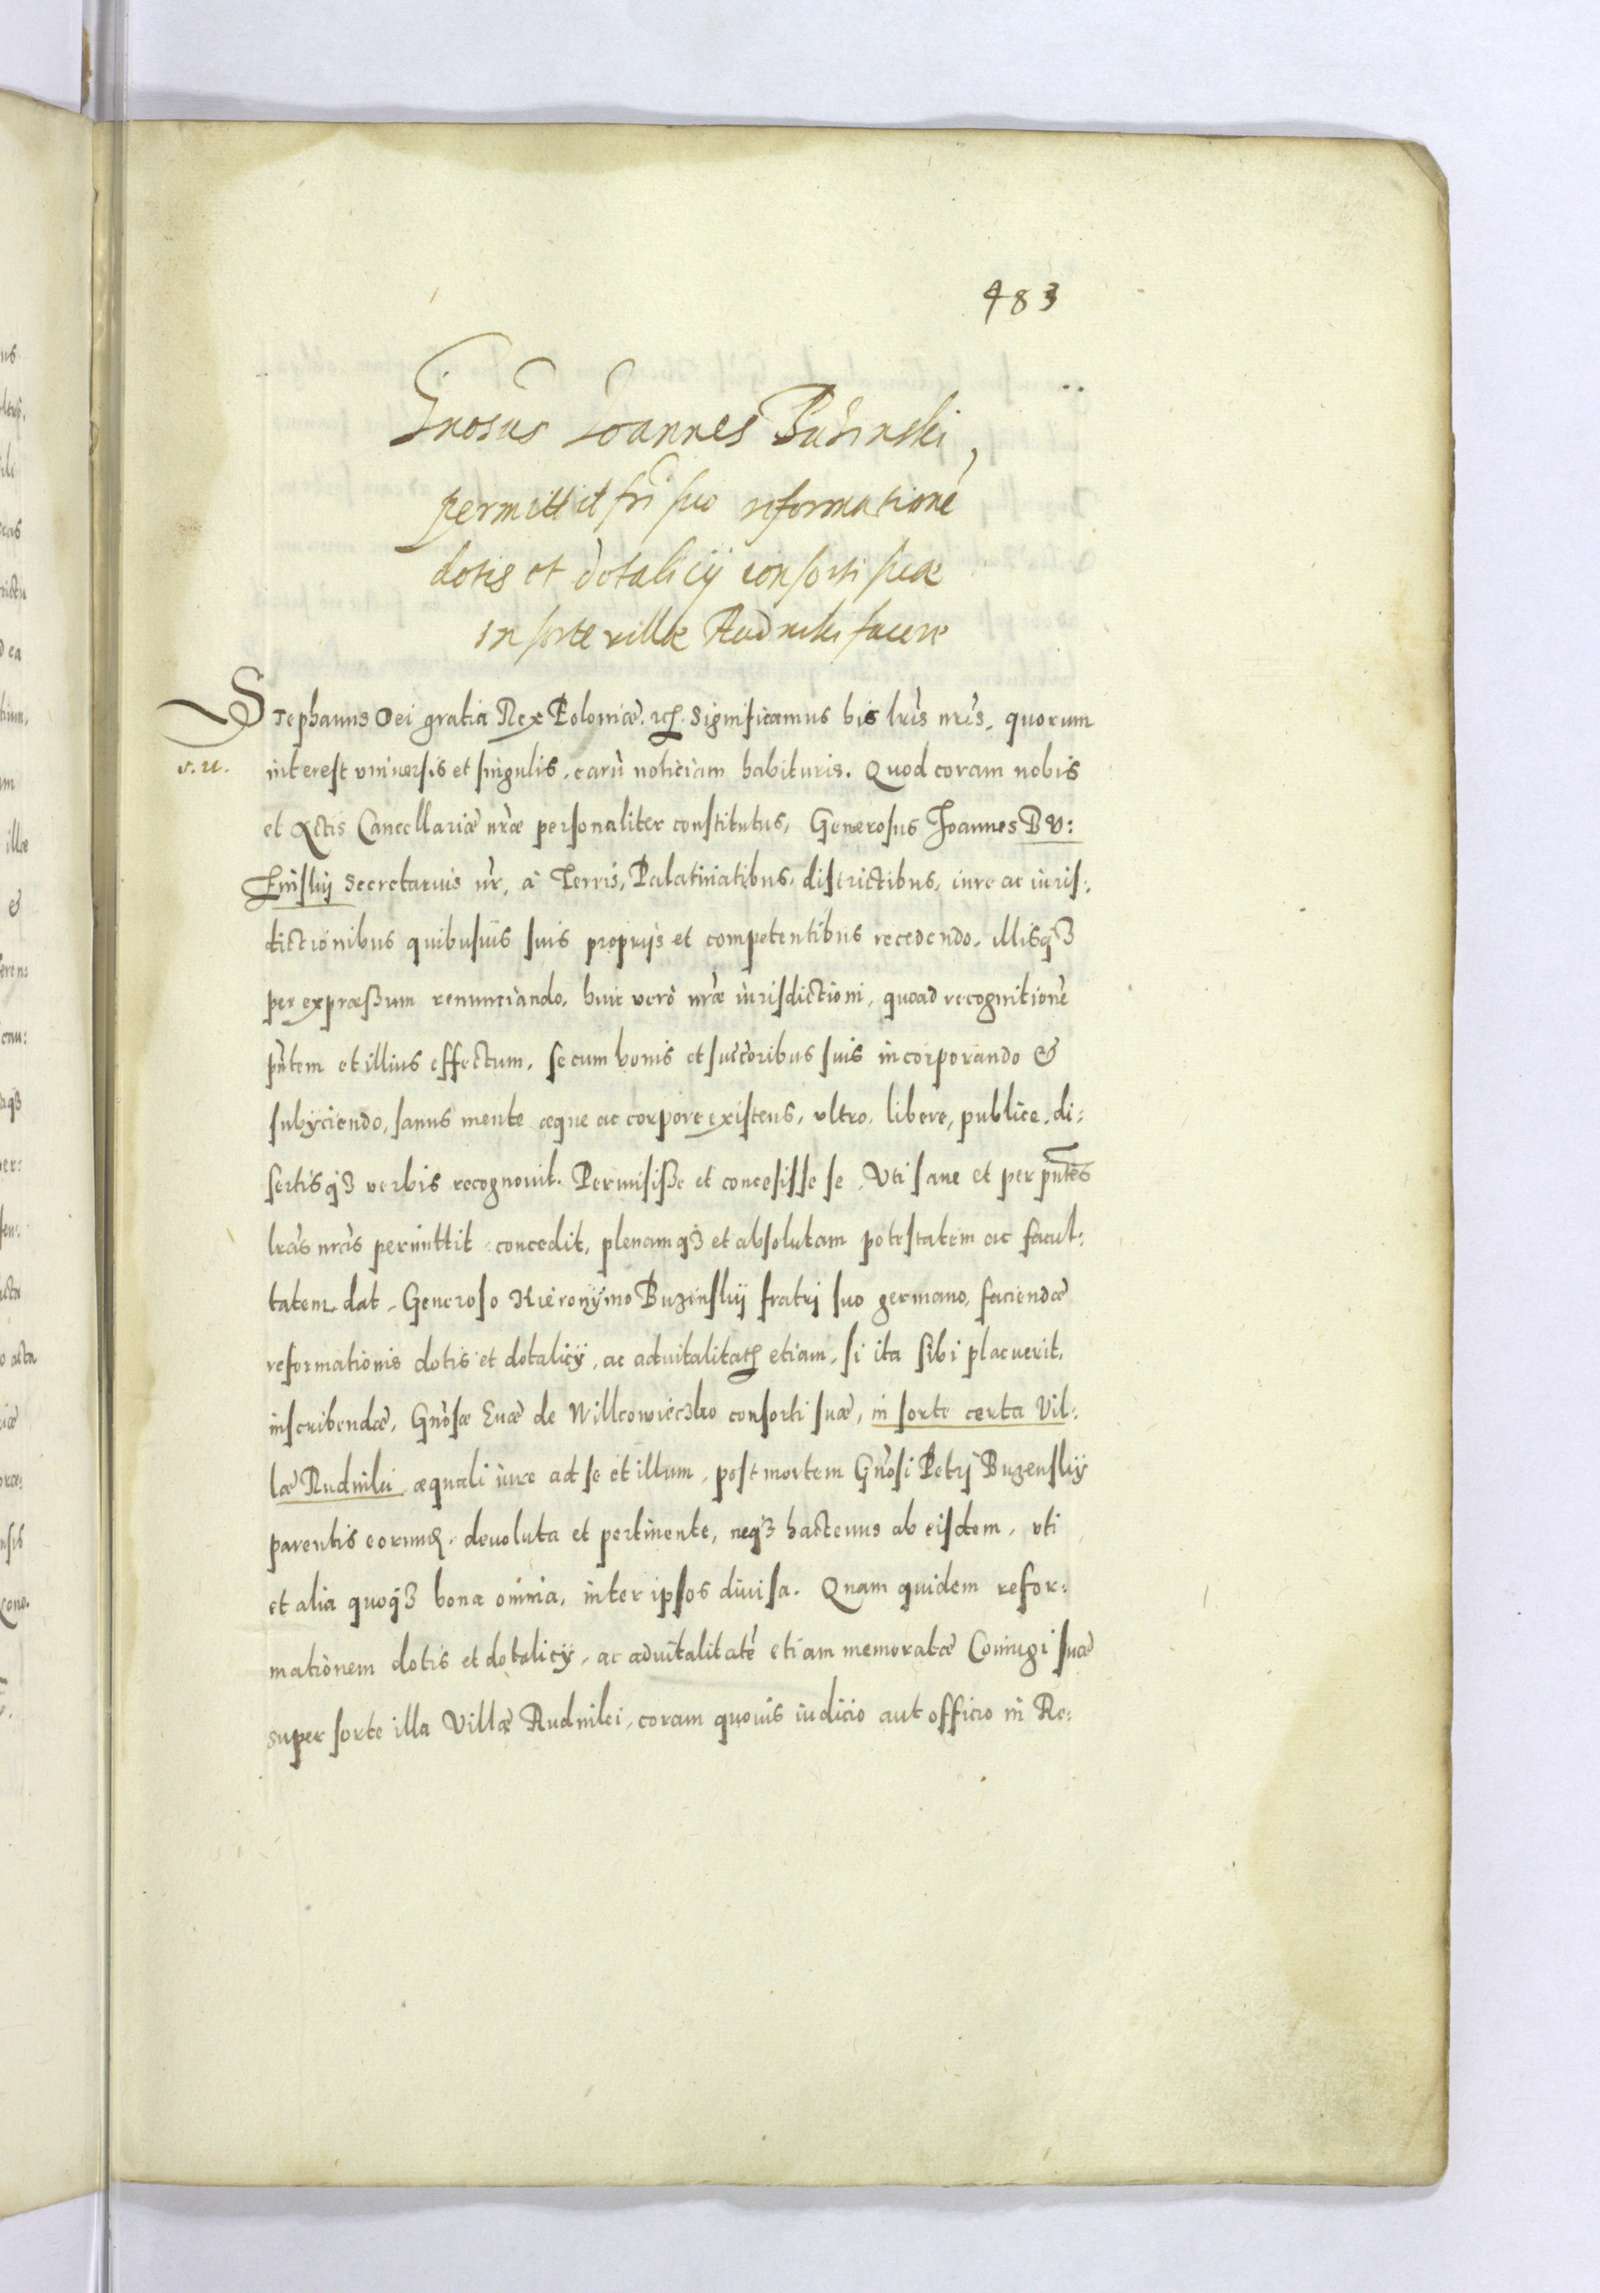 483
Gnosus Joannes Buzinski
permittit fri suo reformatione
dotis et dotalicij consorti suæ
in sorte villæ Rudniki facere
Stephanus Dei gratia Rex Poloniæ. etc. Significamus his lris nris, quorum
v. u.
interest vniuersis et singulis, earū noticiam habituris. Quod coram nobis
et Actis Cancellariæ nræ personaliter constitutus, Generosus Joannes Bu:
zinskij Secretarius nr, à Terris, Palatinatibus, districtibus, iure ac iuris:
dictionibus quibusuis suis proprijs et competentibus recedendo, illisqȝ
per expræßum renunciando, huic verò nræ iurisdictioni, quoad recognitionē
pntem et illius effectum, se cum bonis et succoribus suis incorporando &
subijciendo, sanus mente æque ac corpore existens, vltro, libere, publice, di:
sertisqȝ verbis recognouit. Permisiße et concesisse se, Vti sane et per pntes
lras nras permittit concedit, plenamqȝ et absolutam potestatem ac facul:
tatem dat, Generoso Hieronymo Buzenskij fratri suo germano, faciendæ
reformationis dotis et dotalicij, ac aduitalitatis etiam, si ita sibi placuerit,
inscribendæ, Gnosæ Euæ de Wilkowieczko consorti suæ, in sorte certa Vil:
læ Rudniki æquali iure ad se et illum, post mortem Gnosi Petri Buzenskij
parentis eorum, deuoluta et pertinente, neqȝ hactenus ab eisdem, vti
et alia quoqȝ bona omnia, inter ipsos diuisa. Quam quidem refor:
mationem dotis et dotalicij, ac aduitalitatē etiam memoratæ Coniugi suæ
super sorte illa Villæ Rudnikei, coram quouis iudicio aut officio in Re: